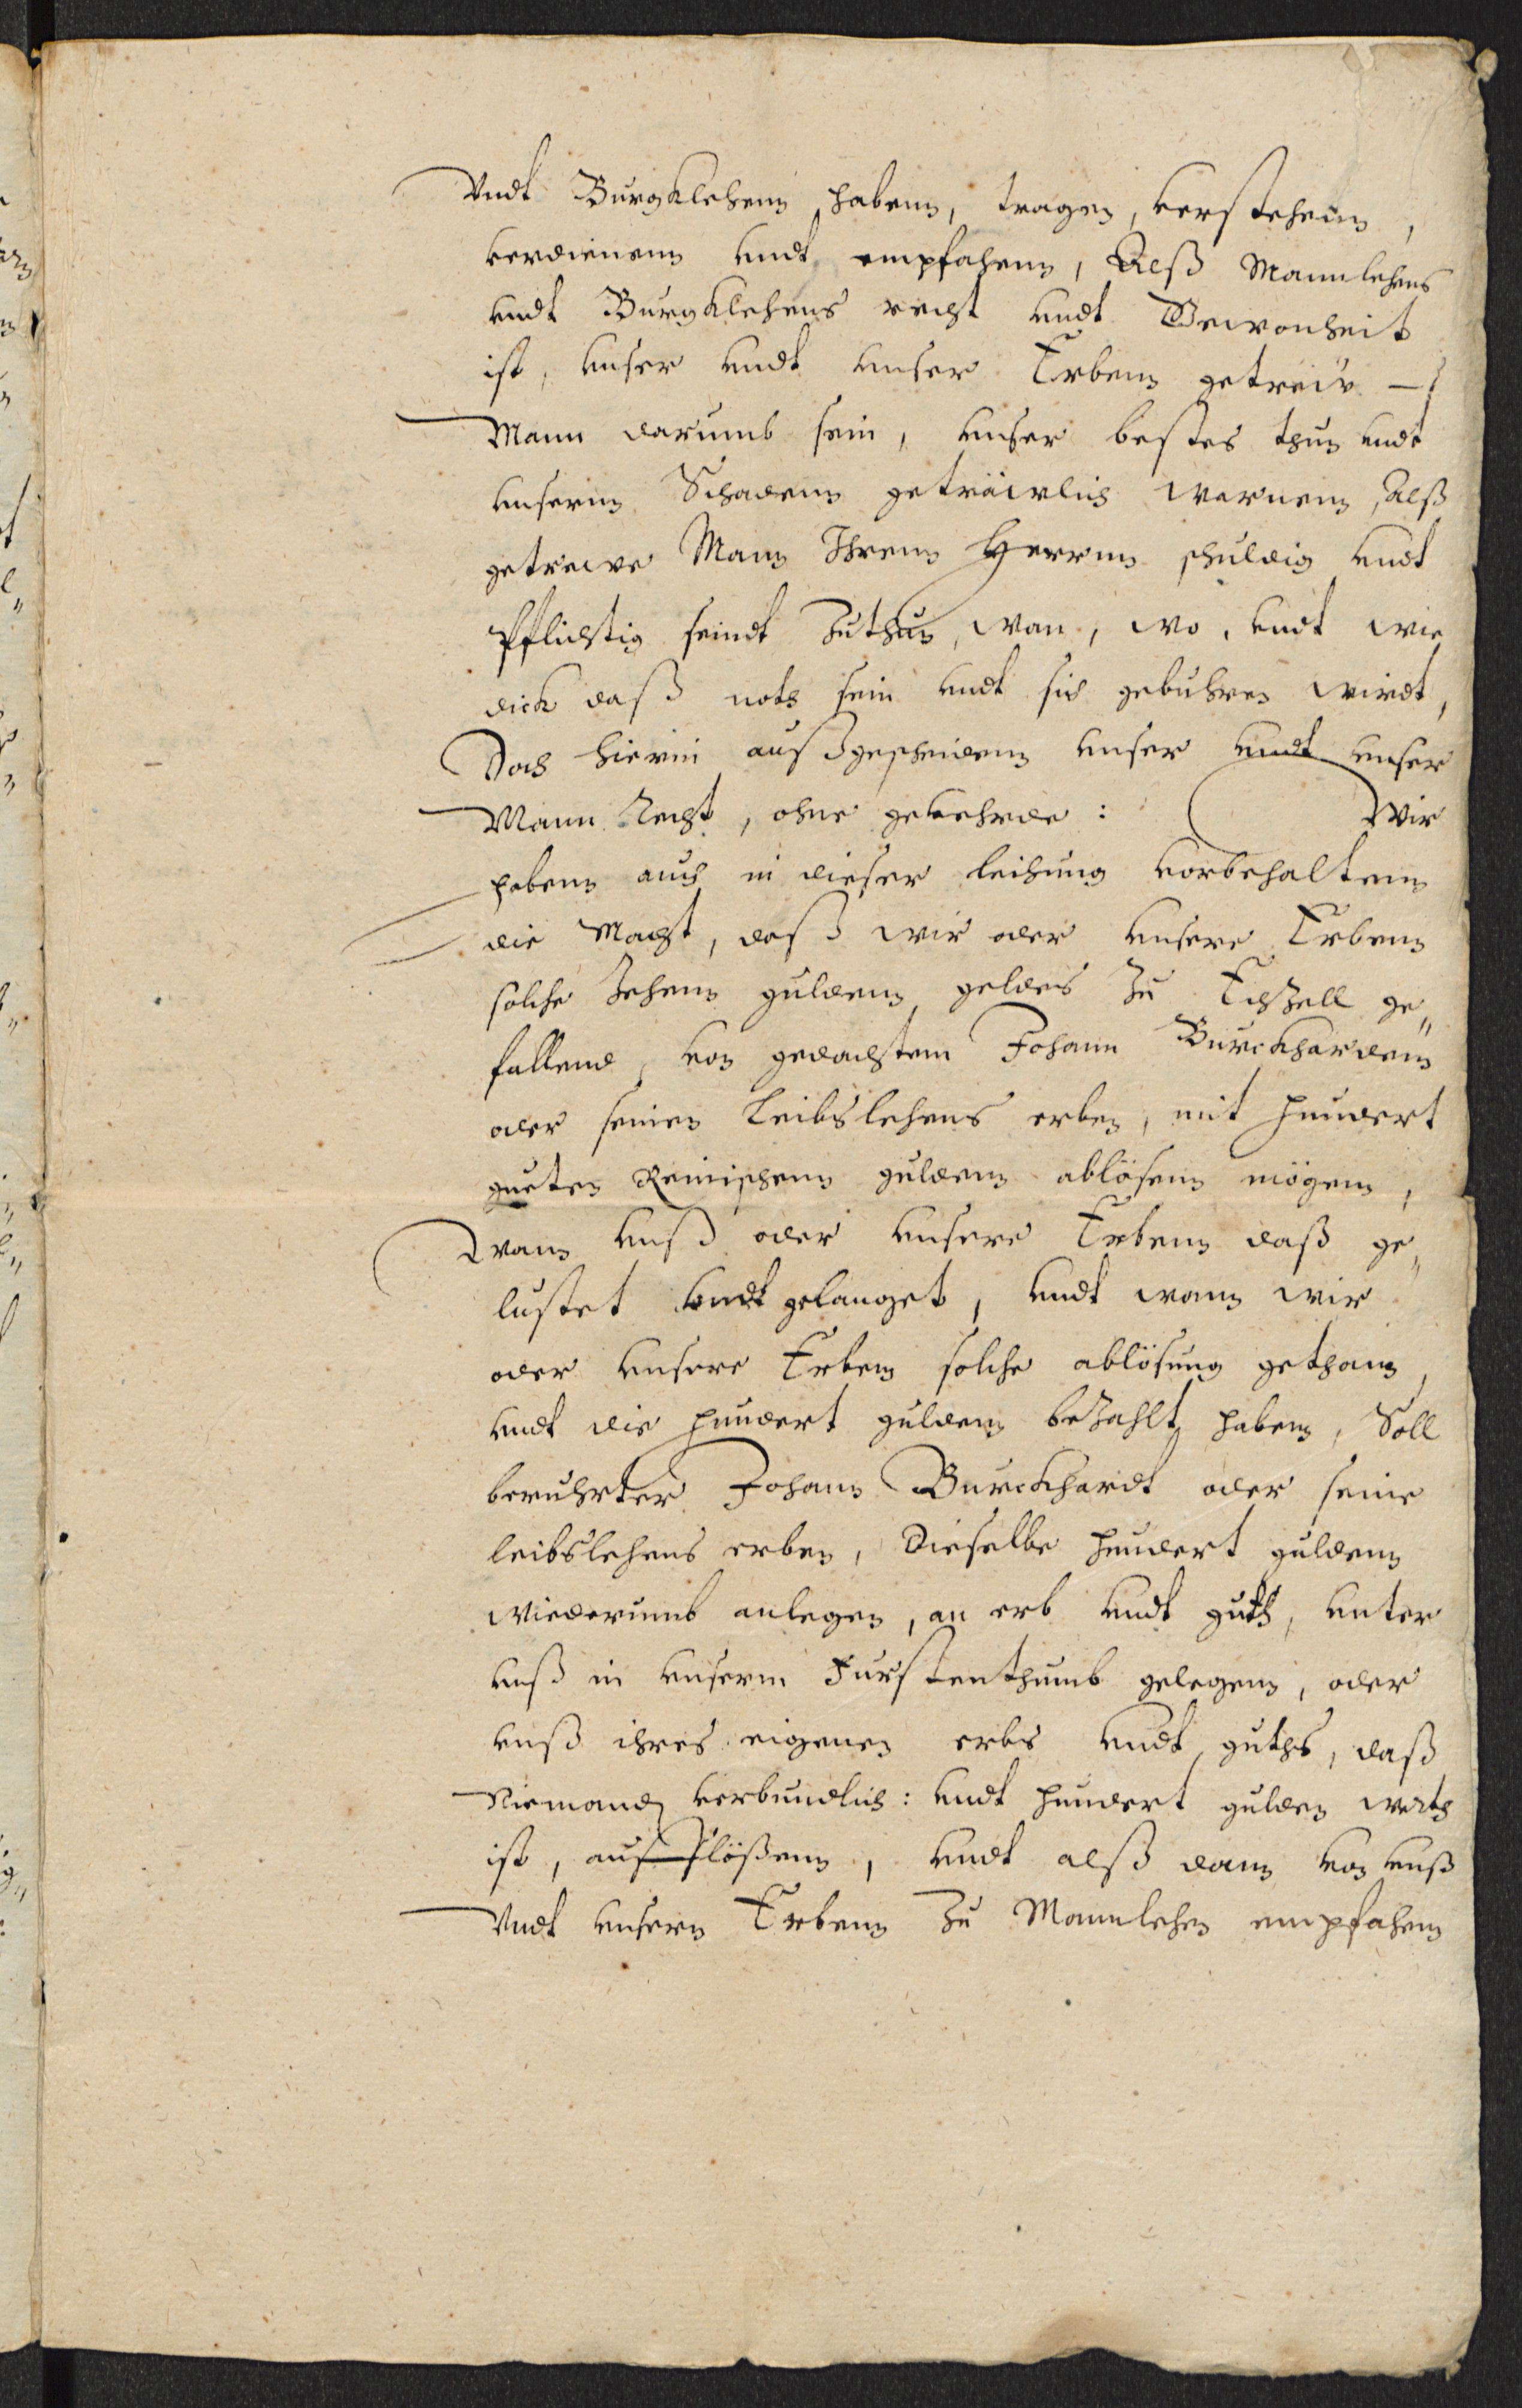 Vndt Burgklehenn habenn, tragen, versteheun,
verdienenn vndt empfahenn, Alß Mannlehens
vndt Burgklehens recht vndt Gewonheit
ist, vnser vndt vnser Erbenn getreüe
Mann darumb sein, vnser bestes thun vndt
vnserun Schadenn geträwlich warnenn, Alß
getrewe Mann Ihrenn Herrnn schuldig vndt
Pflichtig seindt Zuthun, wan, wo, vndt wie
dick daß noth sein vndt sich gebuhren wirdt,
Doch hierin außgescheidenn vnser vndt vnser
Mann Recht, ohne gevehrde: Wir
habenn auch in dieser leihung vorbehaltenn
die Macht, daß wir oder vnsere Erbenn
solche Zehenn guldenn geldes Zu Echzell ge„
fallend, von gedachtem Johann Burckhardenn
oder seinen Leibslehens erben, mit hundert
gueten Reinischenn guldenn ablösenn mögenn,
Wann vnß oder vnsere Erbenn daß ge„
lustet vndt gelanget, vndt wann wir
oder vnsere Erbenn solche ablösung gethann,
vndt die hundert guldenn bezahlt habenn, Soll
beruhrter Johann Burckhardt oder seine
leibslehens erben, Dieselbe hundert guldenn
wiederumb anlegen, an erb vndt guth, vnter
vnß in vnserm Furstenthumb gelegenn, oder
vnß ihres eigenen erbs vndt guths, daß
Niemandt verbundlich: vndt hundert gulden werth
ist, aufflößenn, vndt alß dann von vnß
Vndt vnsern Erbenn Zu Mannlehen empfahenn